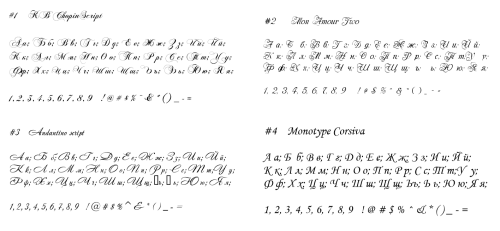 #1 K B Chopin Script
Аа; Бб; Вв; Гг; Дд; Ее; Жж; Зз; Ии; Йй;
Кк; Лл; Мм; Нн; Оо; Пп; Рр; Сс; Тт; Уу;
Фф; Хх; Цц; Чч; Шш; Щщ; Ъъ; Ьь; Юю; Яя;
1, 2, 3, 4, 5, 6, 7, 8, 9 ! @ # % ^ & * ( ) _ - =
#2 Mon Amour Two
Аа; Бб; Вв; Гг; Дд; Ее; Жж; Зз; Ии; Йй;
Кк; Лл; Мм; Нн; Оо; Пп; Рр; Сс; Тт; Уу;
Фф; Хх; Цц; Чч; Шш; Щщ; ъ; Ьь; Юю; Яя;
1, 2, 3, 4, 5, 6, 7, 8, 9 ! # $ % ^ ( ) _ - =
#3 Andantino script
Аа; Бб; Вв; Гг; Дд; Ее; Жж; Зз; Ии; Йй;
Кк; Лл; Мм; Нн; Оо; Пп; Рр; Сс; Тт; Уу;
Фф; Хх; Цц; Чч; Шш; Щщ; Юю; Яя;
1, 2, 3, 4, 5, 6, 7, 8, 9 ! @ # $ % ^ & * ( ) _ - =
#4 Monotype Corsiva
Аа; Бб; Вв; Гг; Дд; Ее; Жж; Зз; Ии; Йй;
Кк; Лл; Мм; Нн; Оо; Пп; Рр; Сс; Тт; Уу;
Фф; Хх; Цц; Чч; Шш; Щщ; Ъъ; Ьь; Юю; Яя;
1, 2, 3, 4, 5, 6, 7, 8, 9 ! @ # $ % ^ & * ( ) _ - =